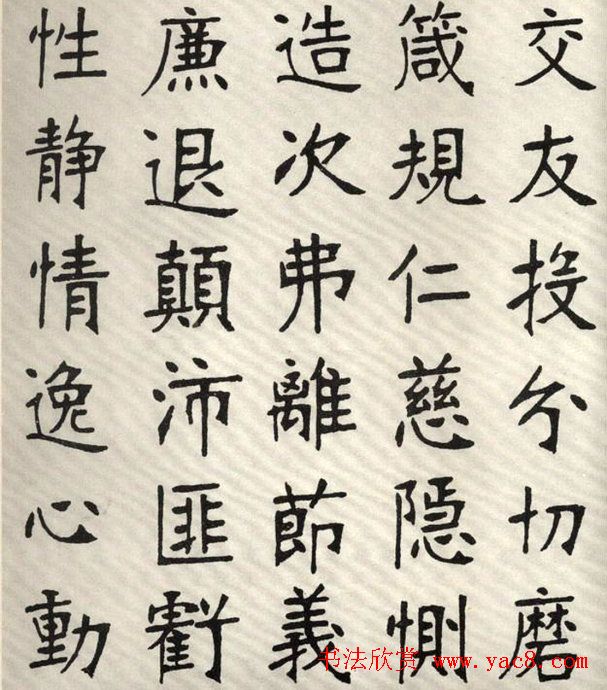 交友投分切磨
箴規仁慈隱惻
造次弗離節義
廉退顛沛匪虧
性静情逸心動
书法欣赏 www.yac8.com